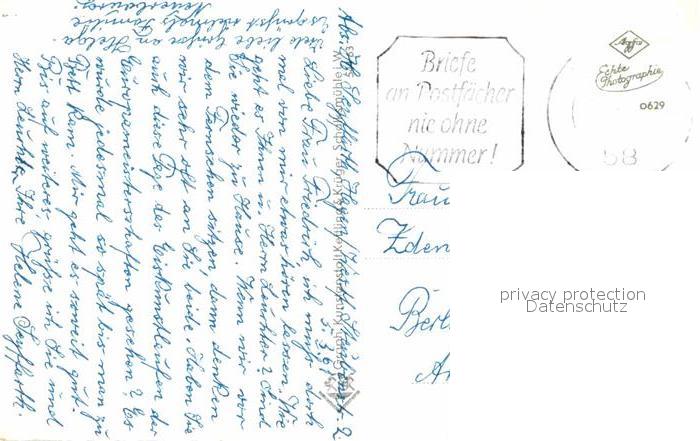 Abs. H. Seyffarth, Hagen /
Liebe Frau Friedrich, ich muß doch
mal von mir etwas hören lassen. Wie
geht es Ihnen u. Herrn Leuchter? Sind
Sie wieder zu Hause. Wenn wir vor
dem Fernsehen sitzen, dann denken
wir sehr oft an Sie beide. Haben Sie
auch diese Tage das Eiskunstlaufen der
Europameisterschaften gesehen? Es
wurde jedesmal so spät bis man zu
Bett kam. Mir geht es soweit gut.
Bis auf weiteres grüße ich Sie und
Herrn Leuchter, Ihre Helene Seyffarth.
Viele liebe Grüße an Helga.
Briefe
an Postfächer
nie ohne
Nummer!
Agfa
Echte
Photographie
0629
58
Frau
Zden
Berl
privacy protection
Datenschutz